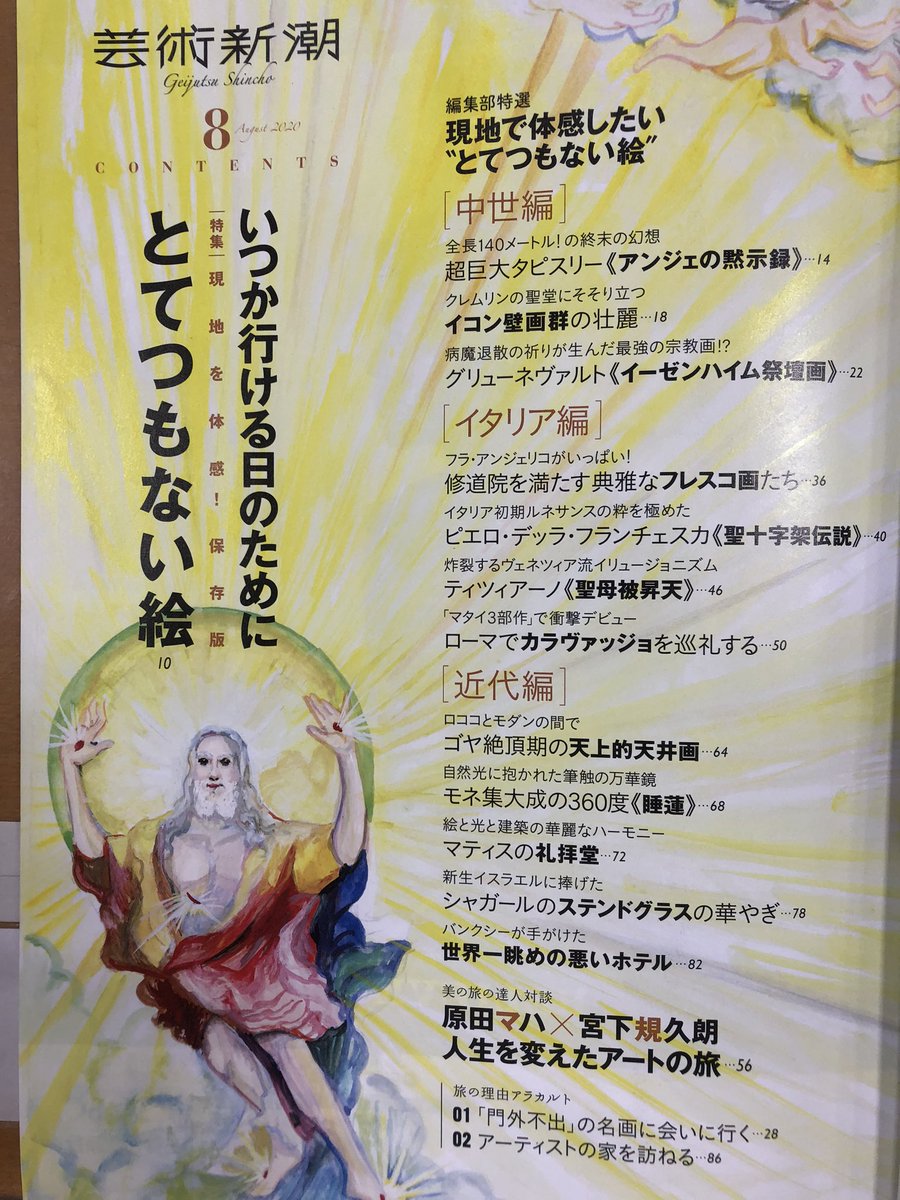 芸術新潮
Geijutsu Shincho
8 August 2020
CONTENTS
いつか行ける日のために
|特集|現地を体感!保存版
とてつもない絵
10
編集部特選
現地で体感したい
“とてつもない絵”
[中世編]
全長140メートル!の終末の幻想
超巨大タピスリー《アンジェの黙示録》…14
クレムリンの聖堂にそそり立つ
イコン壁画群の壮麗…18
病魔退散の祈りが生んだ最強の宗教画!?
グリューネヴァルト《イーゼンハイム祭壇画》…22
[イタリア編]
フラ・アンジェリコがいっぱい!
修道院を満たす典雅なフレスコ画たち…36
イタリア初期ルネサンスの粋を極めた
ピエロ・デッラ・フランチェスカ《聖十字架伝説》…40
炸裂するヴェネツィア流イリュージョニズム
ティツィアーノ《聖母被昇天》…46
「マタイ3部作」で衝撃デビュー
ローマでカラヴァッジョを巡礼する…50
[近代編]
ロココとモダンの間で
ゴヤ絶頂期の天上的天井画…64
自然光に抱かれた筆触の万華鏡
モネ集大成の360度《睡蓮》…68
絵と光と建築の華麗なハーモニー
マティスの礼拝堂…72
新生イスラエルに捧げた
シャガールのステンドグラスの華やぎ…78
バンクシーが手がけた
世界一眺めの悪いホテル…82
美の旅の達人対談
原田マハ×宮下規久朗
人生を変えたアートの旅…56
旅の理由アラカルト
01 「門外不出」の名画に会いに行く…28
02 アーティストの家を訪ねる…86